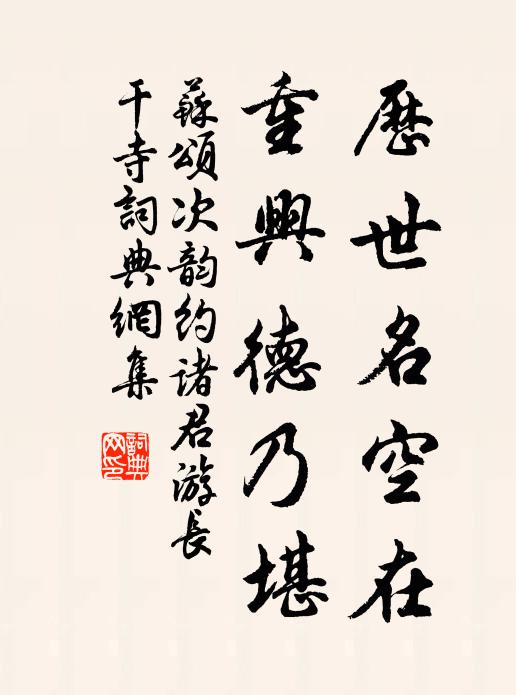 歷世名空在
重興德乃堪
蘇頌次韵約諸君游長
干寺詞典網集
詞典
网印